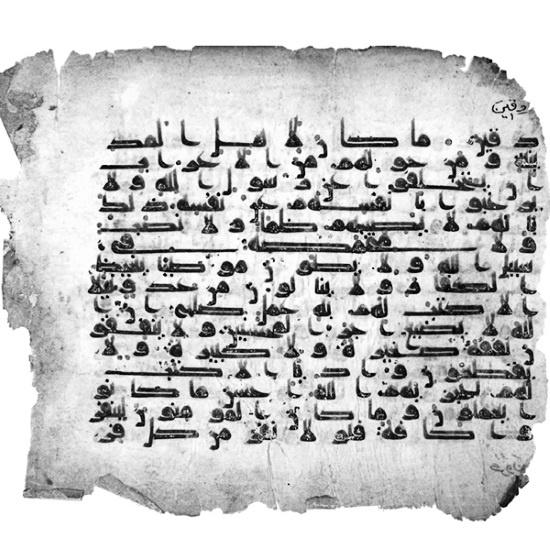 دقين
دقين ما كان لاهل المد
ينة ومن حولهم من الاعراب
ان يتخلفوا عن رسول الله ولا
يرغبوا بانفسهم عن نفسه ذلك
بانهم لا يصيبهم ظما ولا نصب
ولا مخمصة في
سبيل الله ولا يطون موطيا يغيظ
الكفار ولا ينالون من عدو نيلا
الا كتب لهم به عمل صلح ان
الله لا يضيع اجر المحسنين ولا ينفقو
ن نفقة صغيرة ولا كبيرة ولا
يقطعون واديا الا كتب
لهم ليجزيهم الله احسن ما كانو
ا يعملون وما كان المومنون لينفرو
ا كافة فلولا نفر من كل فر